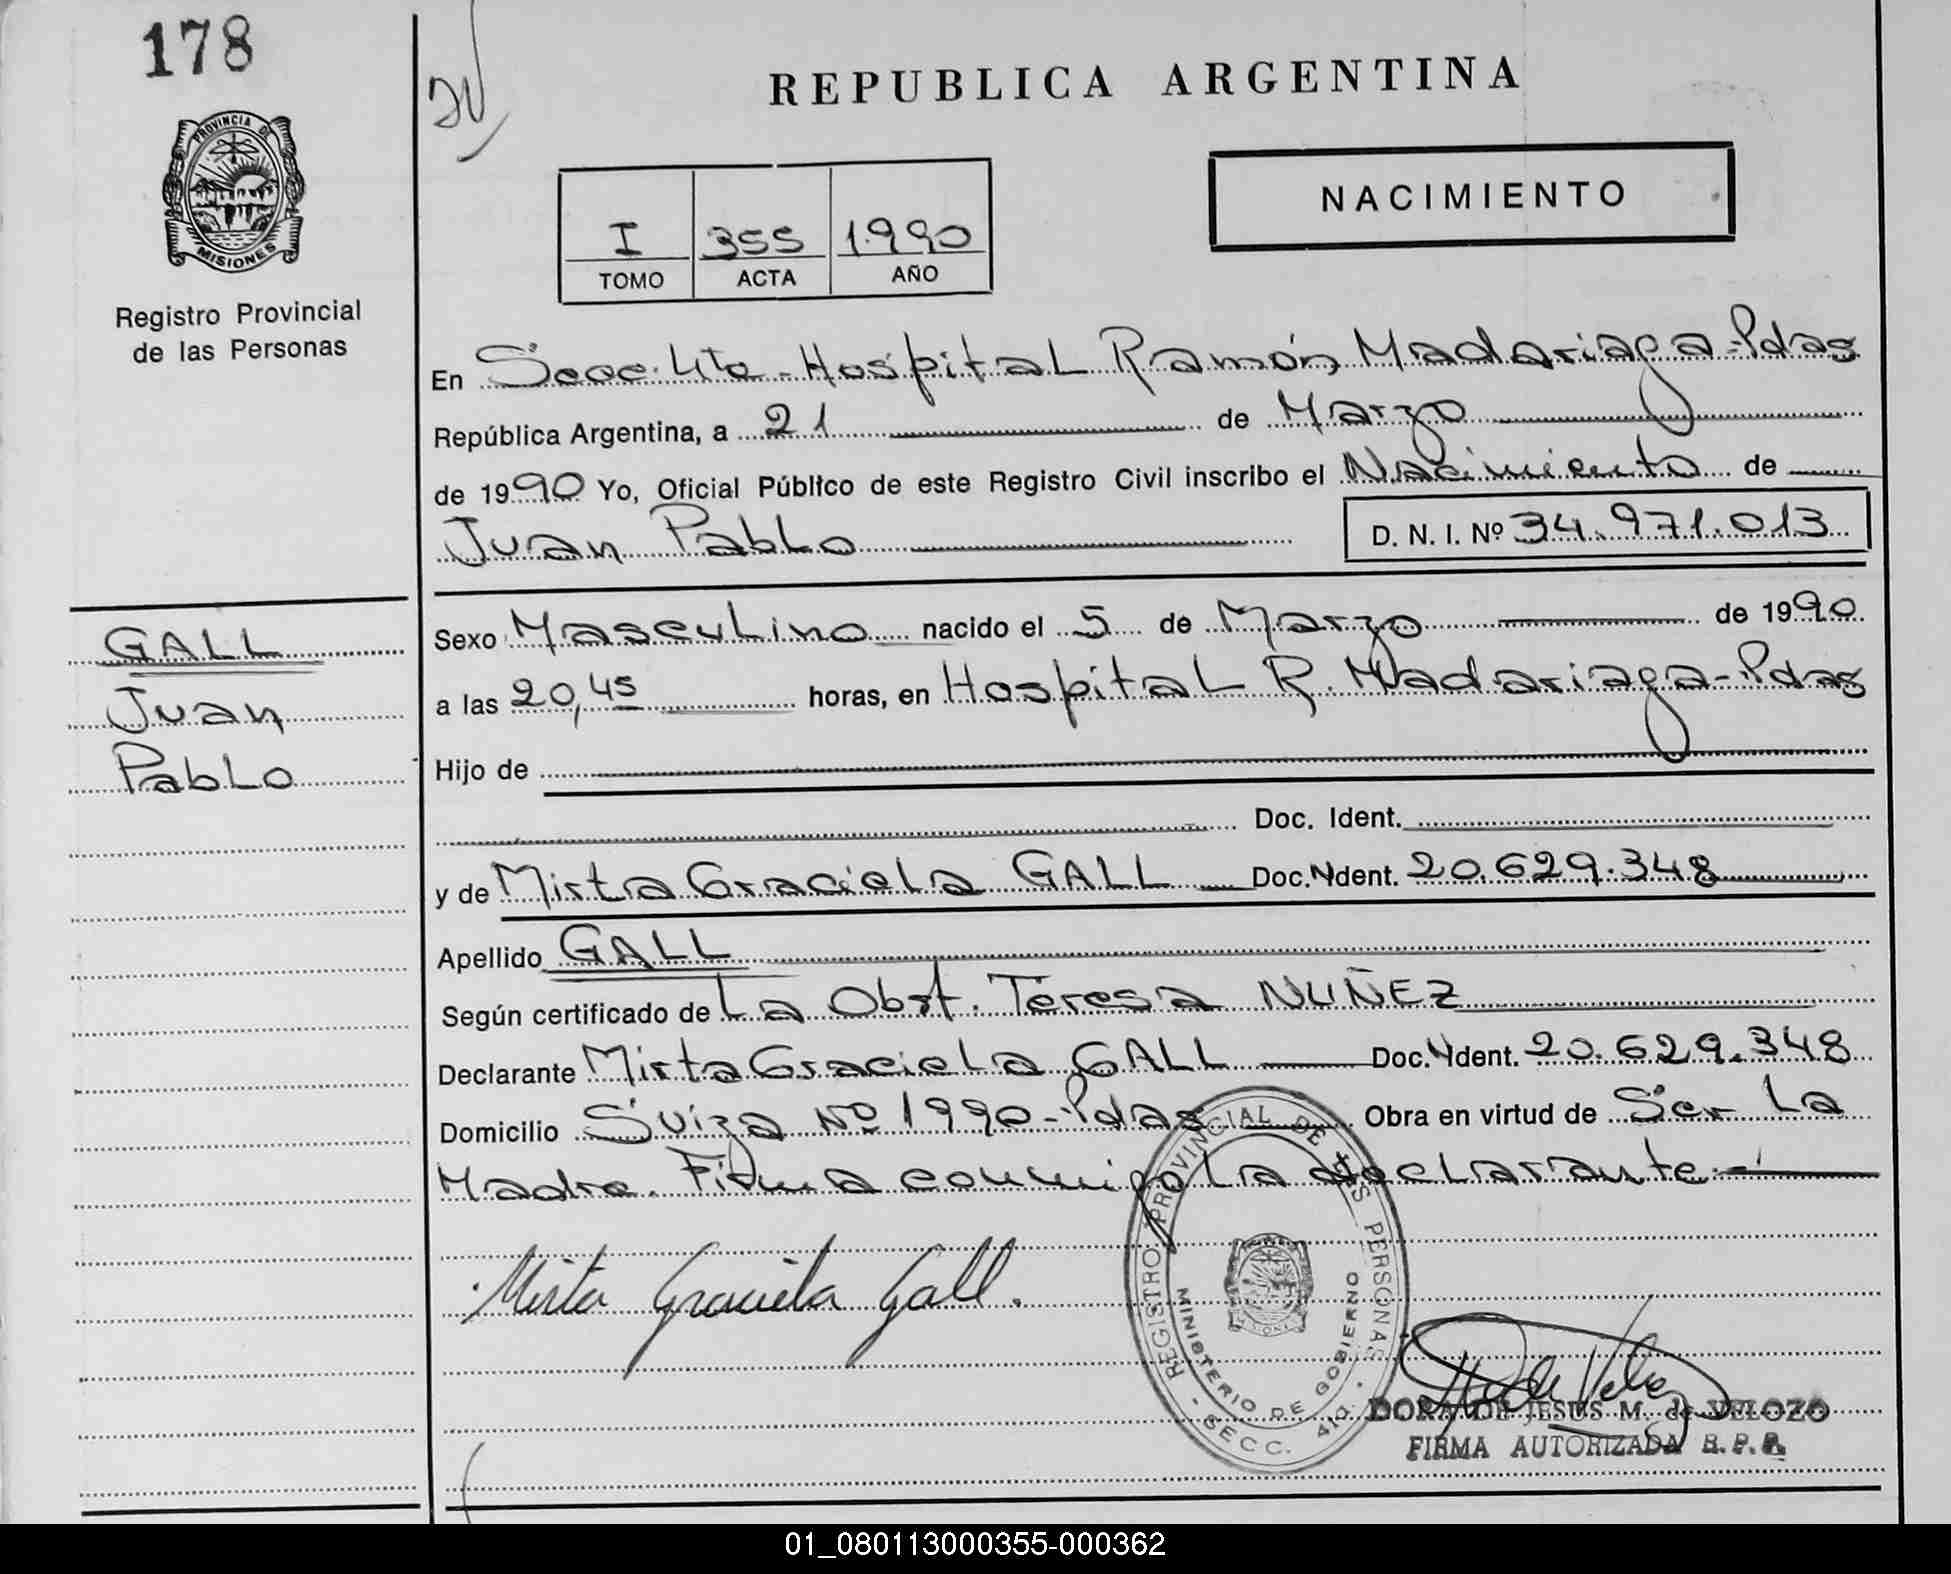 178
PROVINCIA DE
MISIONES
Registro Provincial
de las Personas
GALL
Juan
Pablo
REPUBLICA ARGENTINA
NACIMIENTO
I 355 1990
TOMO ACTA AÑO
En Secc. 4ta - Hospital Ramón Madariaga - Pdas
República Argentina, a 21 de Marzo
de 1990 Yo, Oficial Público de este Registro Civil inscribo el Nacimiento de
Juan Pablo D. N. I. Nº 34.971.013
Sexo Masculino nacido el 5 de Marzo de 1990
a las 20,45 horas, en Hospital R. Madariaga - Pdas
Hijo de
Doc. Ident.
y de Mirta Graciela GALL Doc. Ident. 20.629.348
Apellido GALL
Según certificado de La Obst. Teresa NUÑEZ
Declarante Mirta Graciela GALL Doc. Ident. 20.629.348
Domicilio Suiza Nº 1990 - Pdas Obra en virtud de Ser La
Madre. Firma conmigo La declarante.-
Mirta Graciela Gall.
REGISTRO PROVINCIAL DE LAS PERSONAS
MINISTERIO DE GOBIERNO
- SECC. 4ta. -
DORA DE JESUS M. de VELOZO
FIRMA AUTORIZADA R.P.P.
01_080113000355-000362